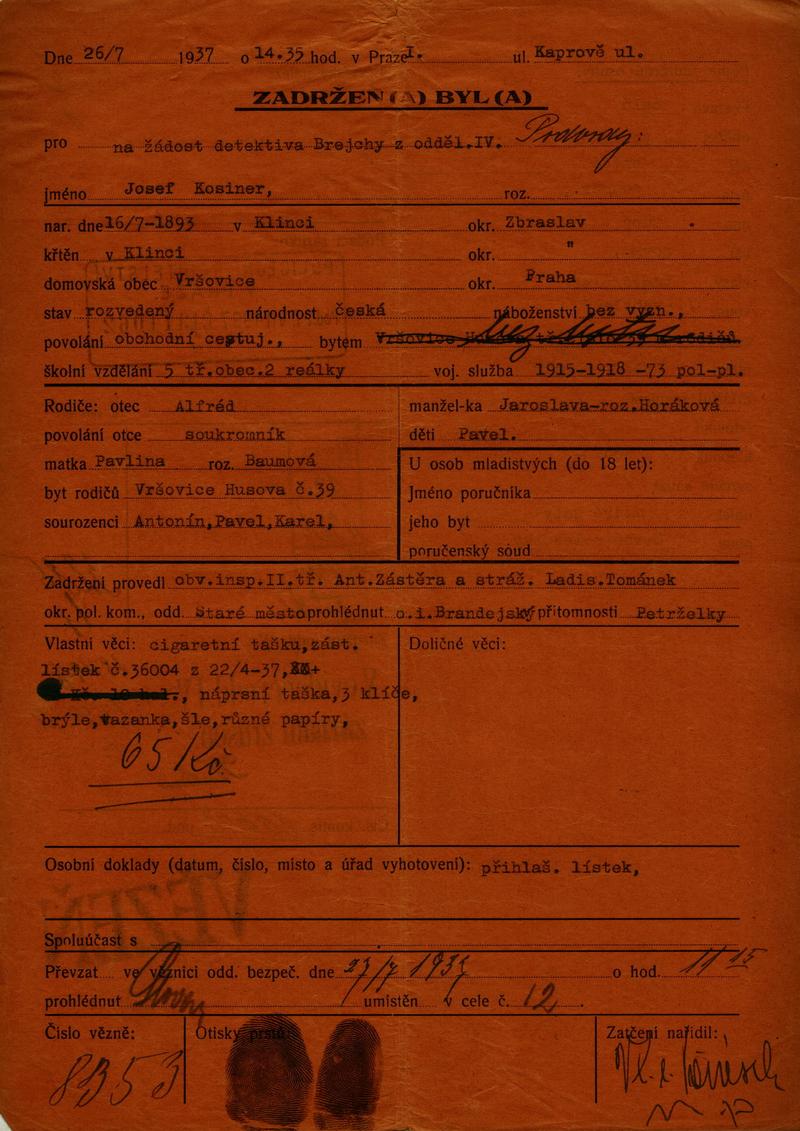 Dne 26/7 1937 o 14.35 hod. v Praze I. ul. Kaprově ul.
ZADRŽEN(A) BYL(A)
pro na žádost detektiva Brejchy z odděl.IV.
jméno Josef Kosiner, roz.
nar. dne 16/7-1893 v Klinci okr. Zbraslav
křtěn v Klinci okr. "
domovská obec Vršovice okr. Praha
stav rozvedený národnost česká náboženství bez vyzn.,
povolání obchodní cestuj., bytem Vršovice bez
školní vzdělání 5 tř.obec.2 reálky voj. služba 1915-1918 -73 pol-pl.
Rodiče: otec Alfréd manžel-ka Jaroslava-roz.Horáková
povolání otce soukromník děti Pavel.
matka Pavlina roz. Baumová U osob mladistvých (do 18 let):
byt rodičů Vršovice Husova č.39 Jméno poručníka
sourozenci Antonín,Pavel,Karel, jeho byt
poručenský soud
Zadržení provedl obv.insp.II.tř. Ant.Zástěra a stráž. Ladis.Tománek
okr. pol. kom., odd. Staré město prohlédnut o.i.Brandejský přítomnosti Petrželky
Vlastní věci: cigaretní tašku,zást. Doličné věci:
lístek č.36004 z 22/4-37,
Kč. 10 hal., náprsní taška,3 klíče,
brýle,vazanka,šle,různé papíry,
65 Kč
Osobní doklady (datum, číslo, místo a úřad vyhotovení): přihlaš. lístek,
Spoluúčast s
Převzat ve věznici odd. bezpeč. dne 27/7 1937 o hod. 11 15
prohlédnut umístěn v cele č. 12.
Číslo vězně: Otisky prstů: Zatčení nařídil:
8353